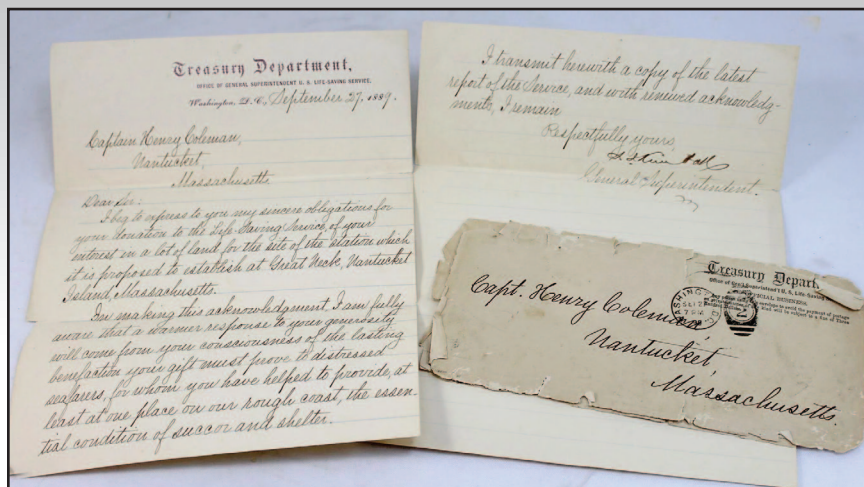 Treasury Department,
OFFICE OF GENERAL SUPERINTENDENT U. S. LIFE-SAVING SERVICE,
Washington, D. C., September 27, 1889.
Captain Henry Coleman,
Nantucket,
Massachusetts.
Dear Sir:
I beg to express to you my sincere obligations for
your donation to the Life-Saving Service, of your
interest in a lot of land, for the site of the station which
it is proposed to establish at Great Neck, Nantucket
Island, Massachusetts.
In making this acknowledgment I am fully
aware that a warmer response to your generosity
will come from your consciousness of the lasting
benefaction your gift must prove to distressed
seafarers, for whom you have helped to provide, at
least at one place on our rough coast, the essen-
tial condition of succor and shelter.
I transmit herewith a copy of the latest
report of the Service, and with renewed acknowledg-
ments, I remain
Respectfully yours,
General Superintendent.
Treasury Depart
Office of General Superintendent U. S. Life-Saving
OFFICIAL BUSINESS.
Capt. Henry Coleman
Nantucket
Massachusetts.